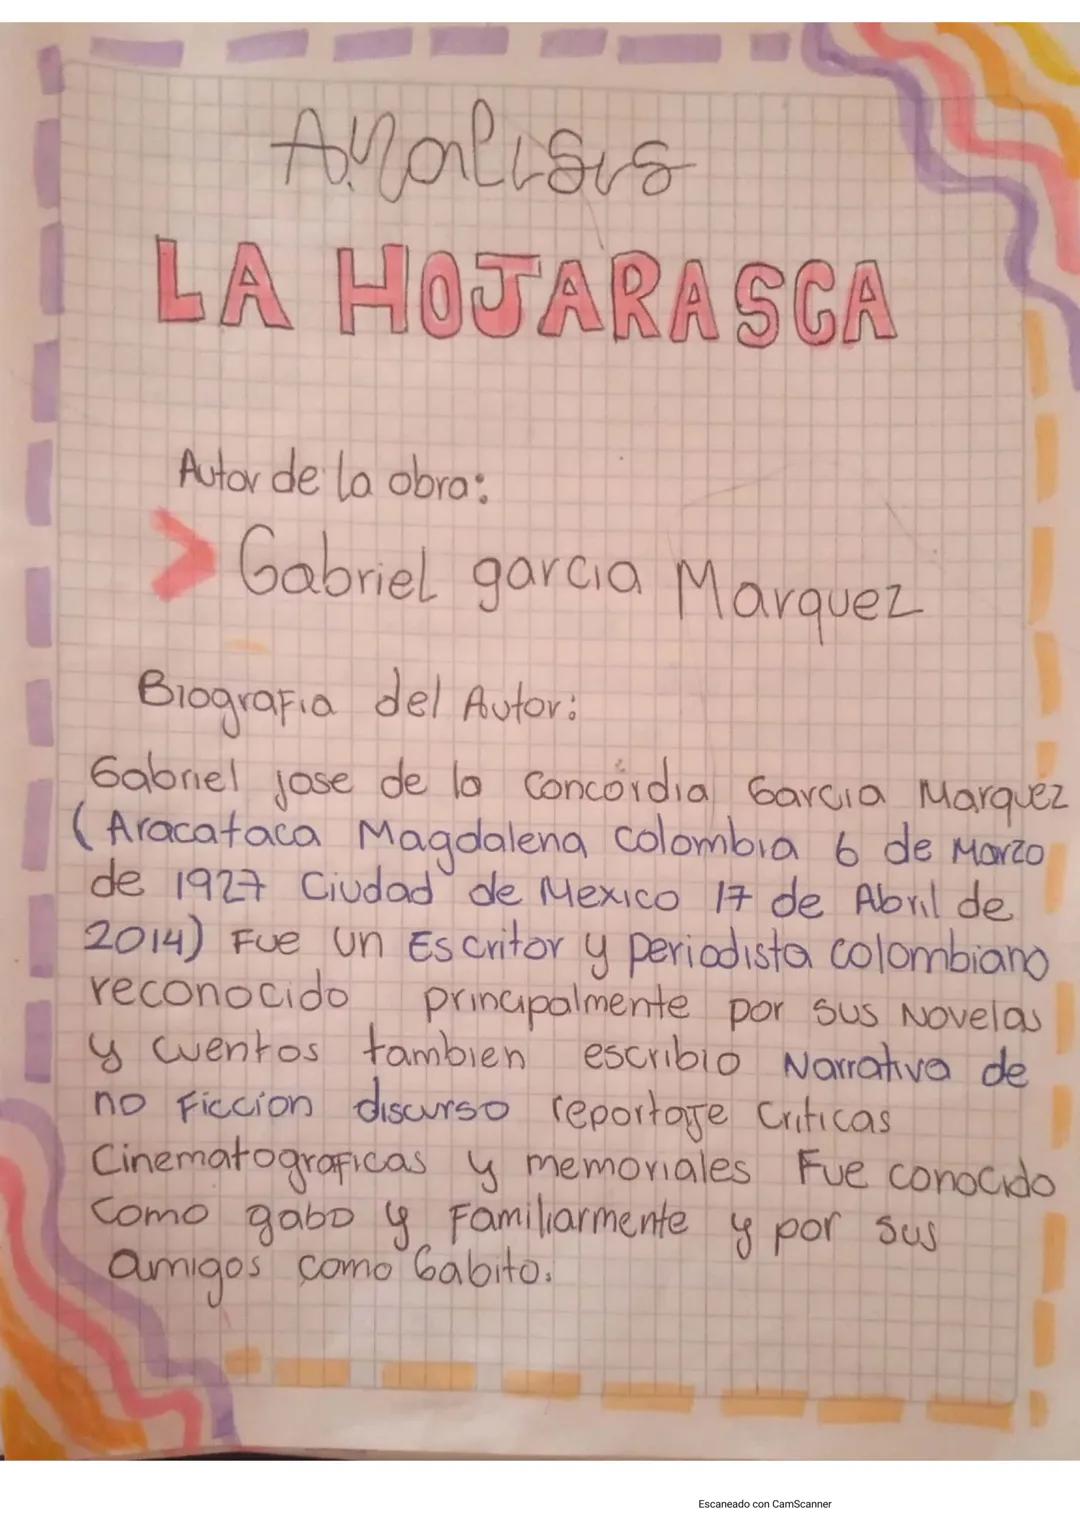 Analisis
LA HOJARASCA
Autor de la obra:
> Gabriel garcia Marquez
Biografia del Autor:
Gabriel jose de la Concordia Garcia Marquez
(Aracataca Magdalena Colombia 6 de Marzo
de 1927 Ciudad de Mexico 17 de Abril de
2014) Fue un Escritor y periodista colombiano
reconocido principalmente por sus Novelas
y cuentos tambien escribio Narrativa de
no Ficcion discurso reportaje Criticas
Cinematograficas y memoriales Fue conocido
Como gabo y Familiarmente y por sus
amigos como Gabito.
Escaneado con CamScanner